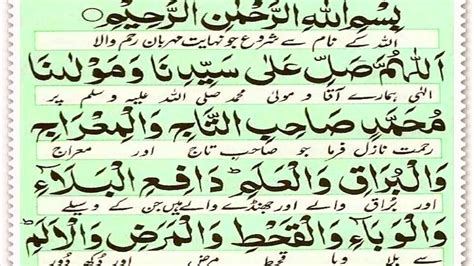 بِسْمِ اللهِ الرَّحْمٰنِ الرَّحِيْمِ
اللہ کے نام سے شروع جو نہایت مہربان رحم والا
اَللّٰهُمَّ صَلِّ عَلٰى سَيِّدِنَا وَمَوْلٰىنَا
الٰہی ہمارے آقا و مولیٰ محمد صلی اللہ علیہ وسلم پر
مُحَمَّدٍ صَاحِبِ التَّاجِ وَالْمِعْرَاجِ
رحمت نازل فرما جو صاحب تاج اور معراج
وَالْبُرَاقِ وَالْعَلَمِ ط دَافِعِ الْبَلَآءِ
اور براق والے اور جھنڈے والے ہیں جن کے وسیلے
وَالْوَبَآءِ وَالْقَحْطِ وَالْمَرَضِ وَالْاَلَمِ ط
سے بلا وبا قحط مرض اور دکھ دور